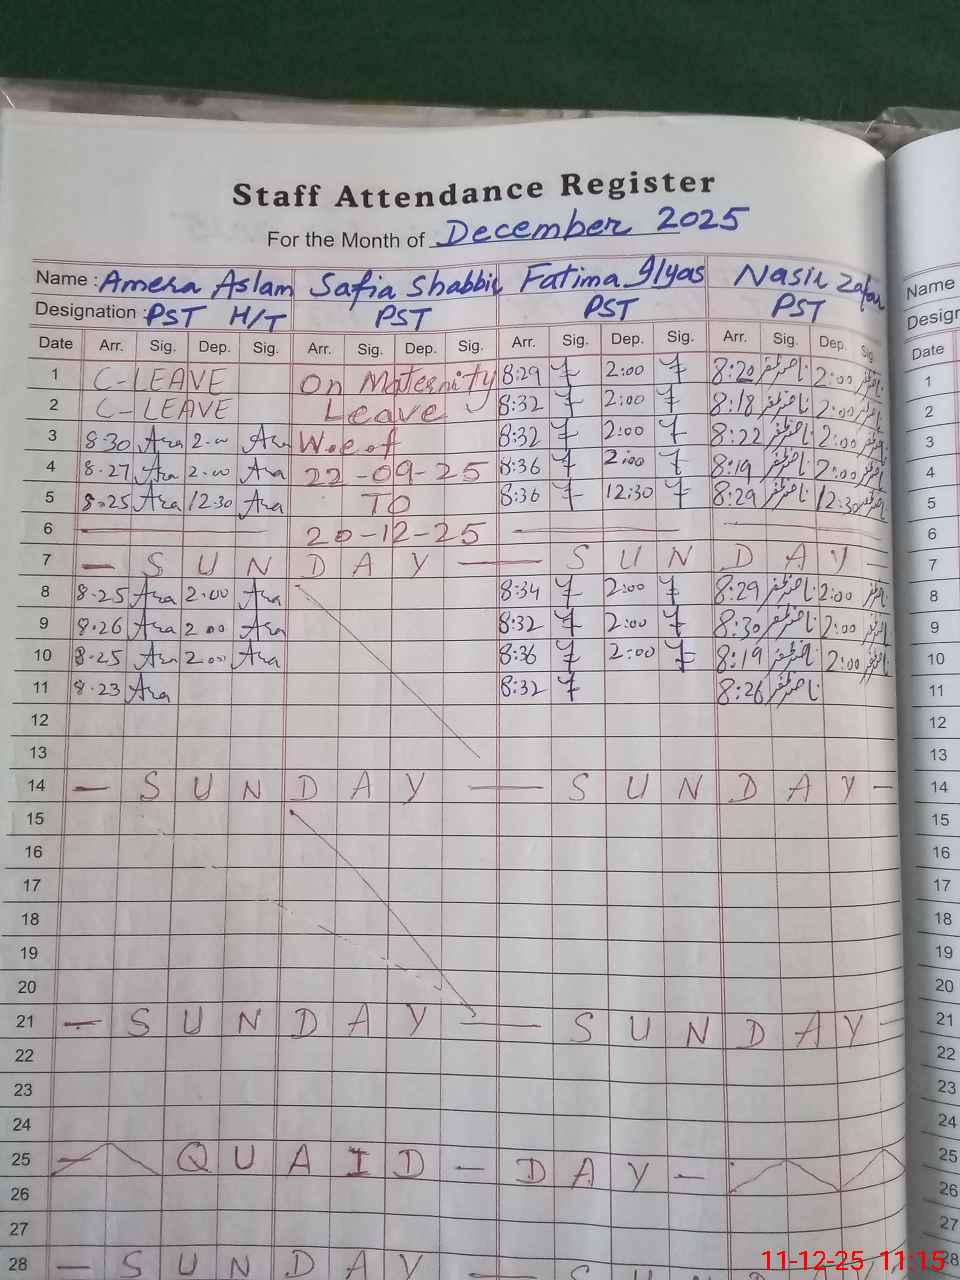 Staff Attendance Register
For the Month of December 2025
Name : Amera Aslam Safia Shabbir Fatima Ilyas Nasir Zafar Name
Designation : PST H/T PST PST PST Design
Date Arr. Sig. Dep. Sig. Arr. Sig. Dep. Sig. Arr. Sig. Dep. Sig. Arr. Sig. Dep. Sig. Date
1 C-LEAVE On Maternity 8:29 2:00 8:20 ناصر ظفر 2:00 ناصر ظفر 1
2 C-LEAVE Leave 8:32 2:00 8:18 ناصر ظفر 2:00 ناصر ظفر 2
3 8.30 Ara 2.00 Ara W.e.of 8:32 2:00 8:22 ناصر ظفر 2:00 ناصر ظفر 3
4 8.27 Ara 2.00 Ara 22-09-25 8:36 2:00 8:19 ناصر ظفر 2:00 ناصر ظفر 4
5 8.25 Ara 12.30 Ara TO 8:36 12:30 8:29 ناصر ظفر 12:30 ناصر ظفر 5
6 20-12-25 6
7 - SUNDAY - SUNDAY - 7
8 8.25 Ara 2.00 Ara 8:34 2:00 8:29 ناصر ظفر 2:00 ناصر ظفر 8
9 8.26 Ara 2.00 Ara 8:32 2:00 8:30 ناصر ظفر 2:00 ناصر ظفر 9
10 8.25 Ara 2.00 Ara 8:36 2:00 8:19 ناصر ظفر 2:00 ناصر ظفر 10
11 8.23 Ara 8:32 8:26 ناصر ظفر 11
12 12
13 13
14 - SUNDAY - SUNDAY - 14
15 15
16 16
17 17
18 18
19 19
20 20
21 - SUNDAY - SUNDAY - 21
22 22
23 23
24 24
25 - QUAID - DAY - 25
26 26
27 27
28 - SUNDAY - SUNDAY 28
11-12-25 11:15